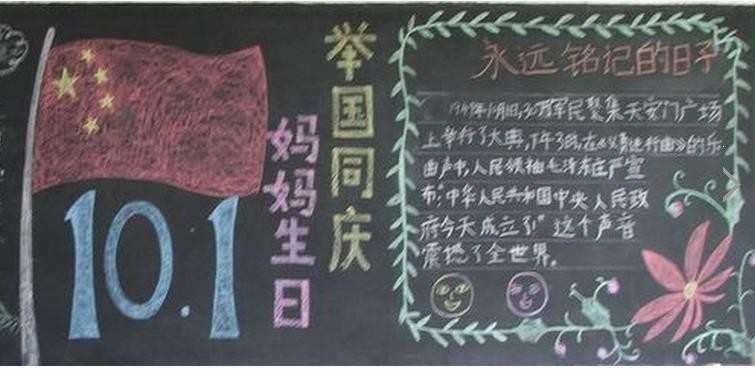 10.1
举国同庆
妈妈生日
永远铭记的日子
1949年10月1日,30万军民聚集天安门广场
上举行了大典,下午3时,在《义勇军进行曲》的乐
曲声中,人民领袖毛泽东庄严宣
布:"中华人民共和国中央人民政
府今天成立了!"这个声音
震撼了全世界。